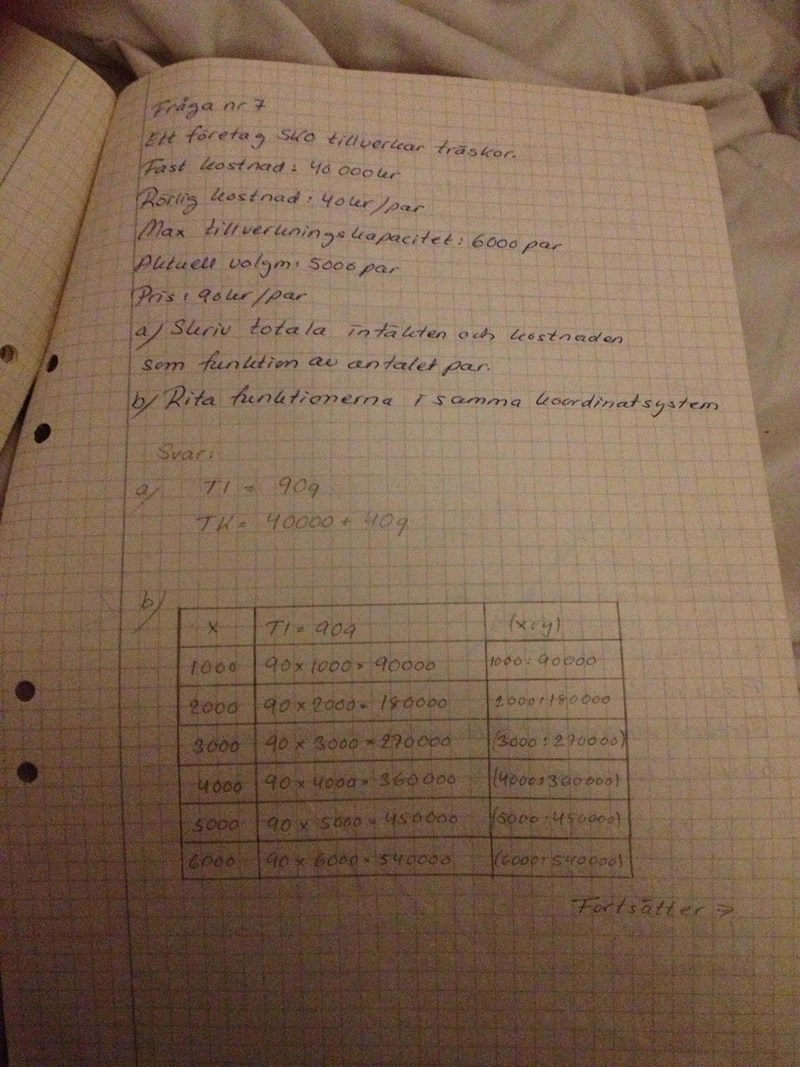 Fråga nr 7
Ett företag SKO tillverkar träskor.
Fast kostnad: 40 000kr
Rörlig kostnad: 40kr/par
Max tillverkningskapacitet: 6000 par
Aktuell volym: 5000 par
Pris: 90kr/par
a) Skriv totala intäkten och kostnaden
som funktion av antalet par.
b) Rita funktionerna i samma koordinatsystem
Svar:
a) TI = 90q
TK = 40000 + 40q
b)
x TI = 90q (x:y)
1000 90 x 1000 = 90000 1000:90000
2000 90 x 2000 = 180000 2000:180000
3000 90 x 3000 = 270000 (3000:270000)
4000 90 x 4000 = 360000 (4000:360000)
5000 90 x 5000 = 450000 (5000:450000)
6000 90 x 6000 = 540000 (6000:540000)
Fortsätter →